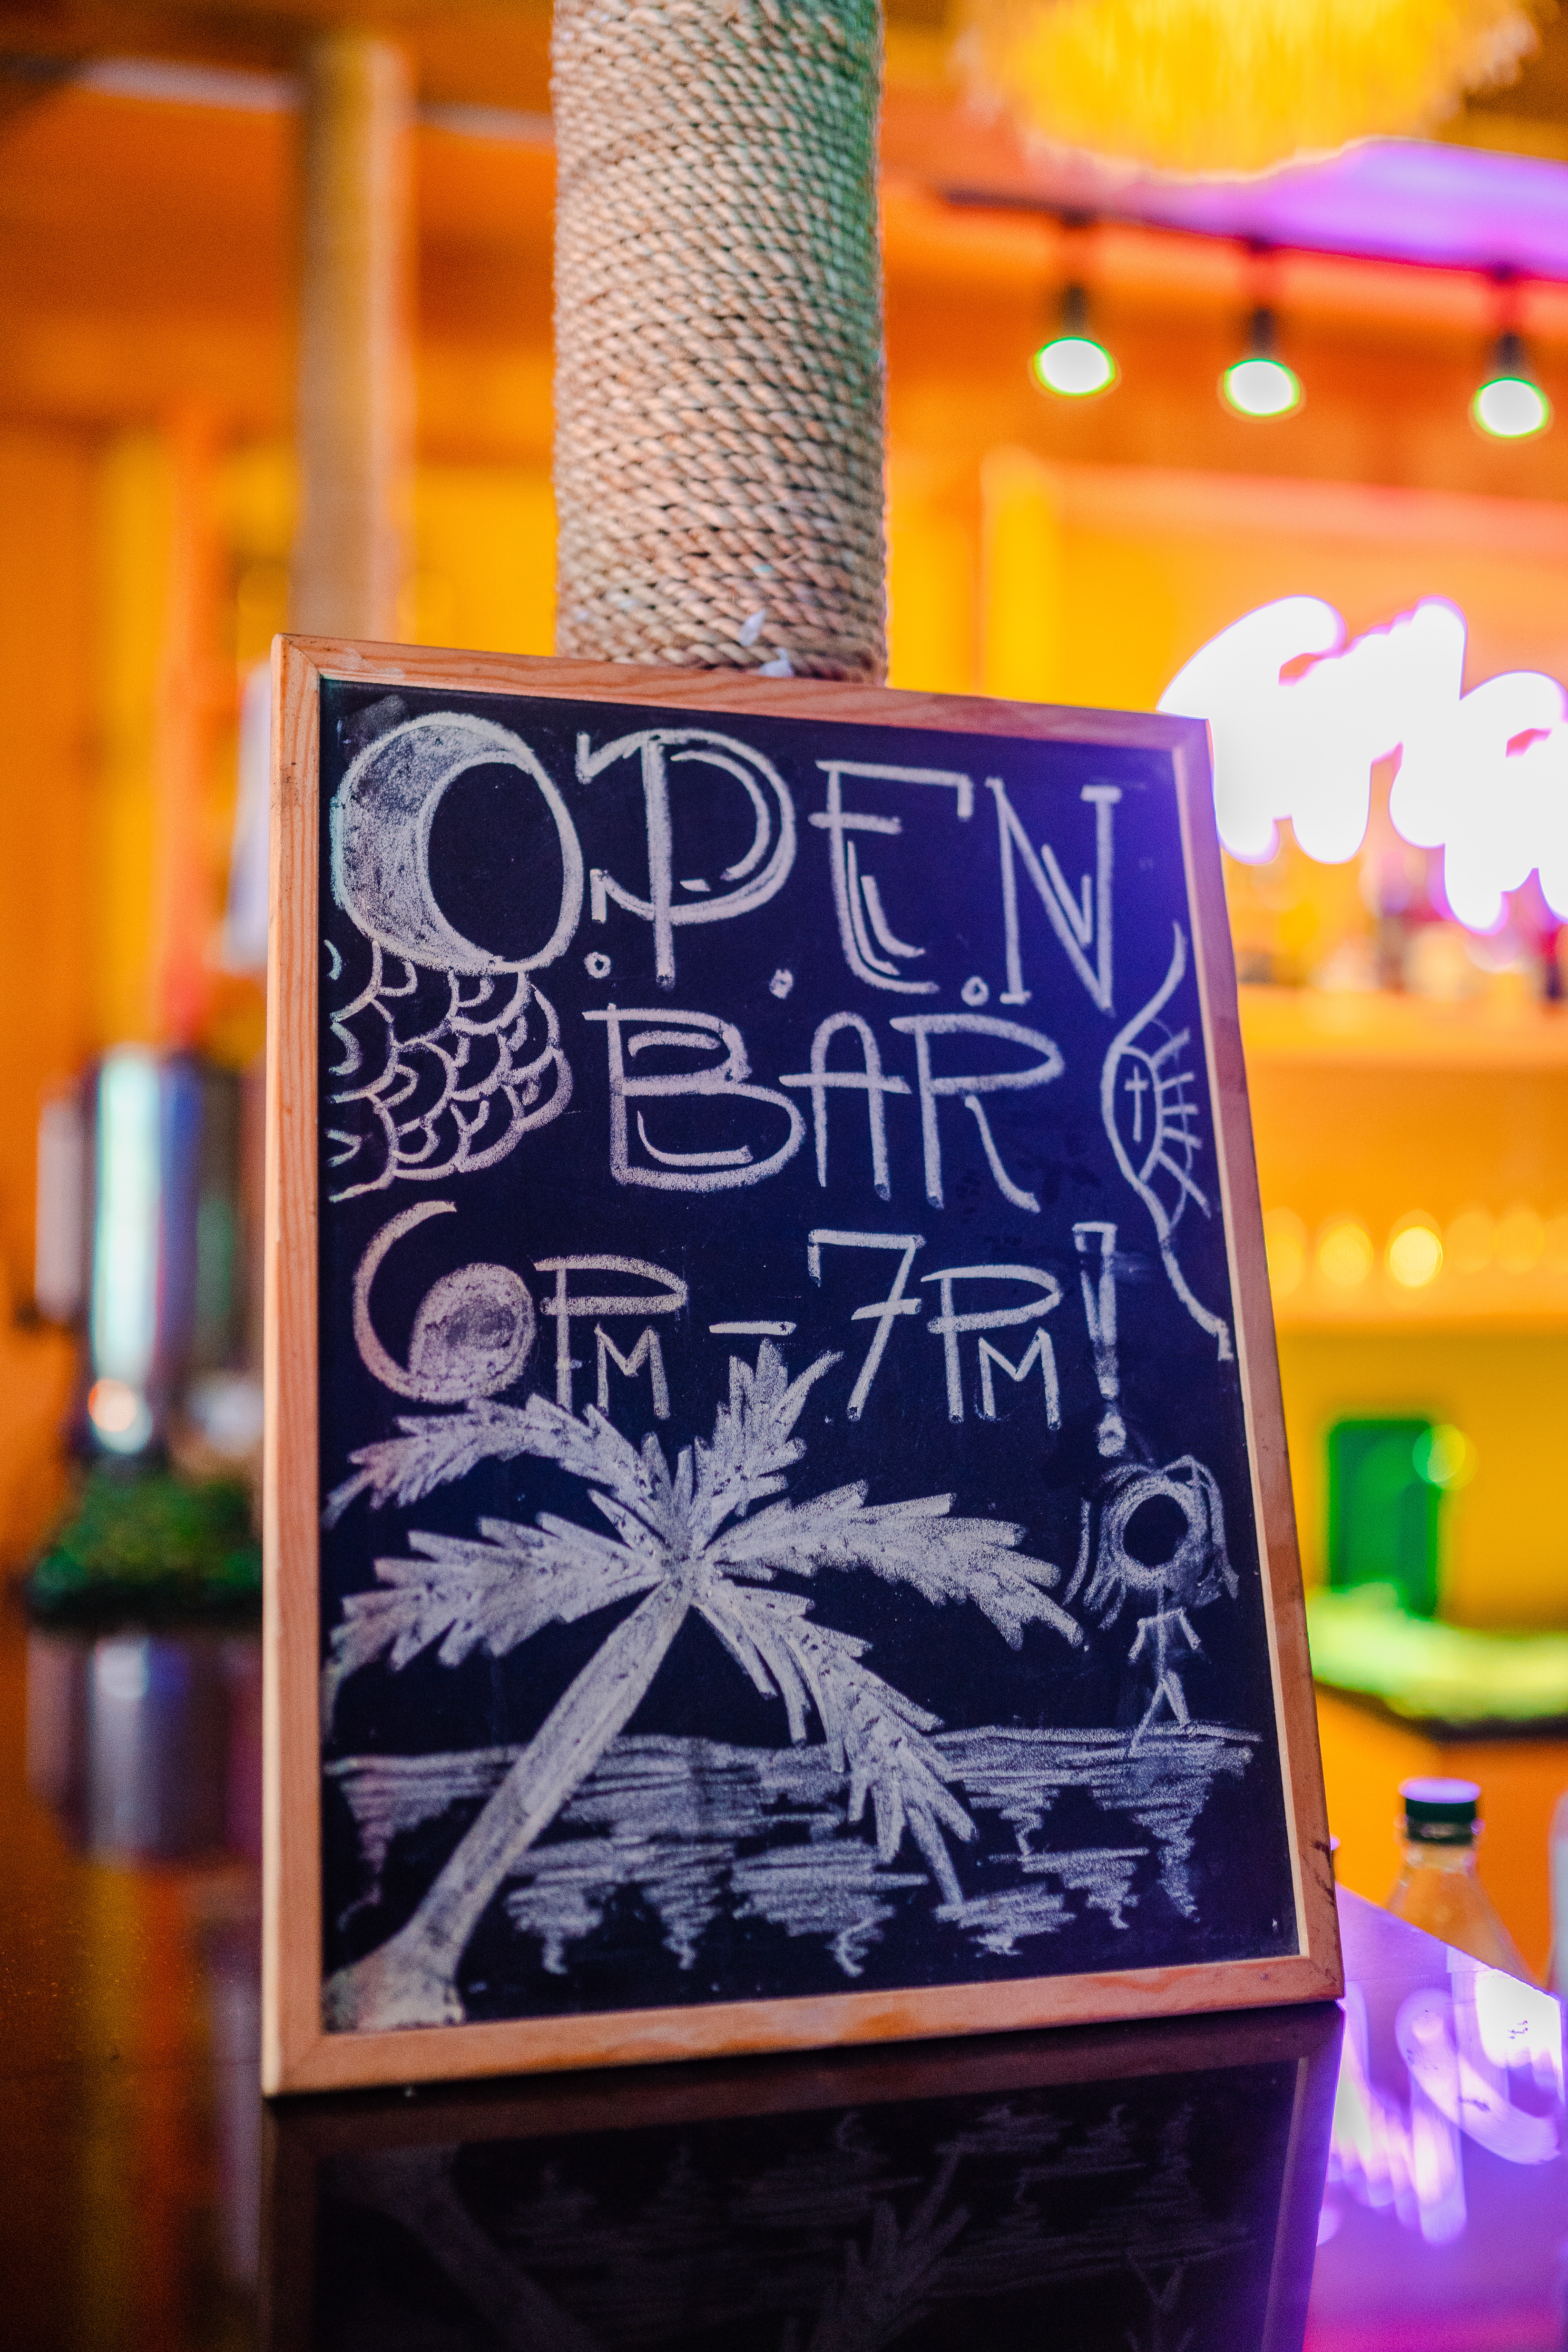 O.P.E.N
BAR
6PM – 7PM!